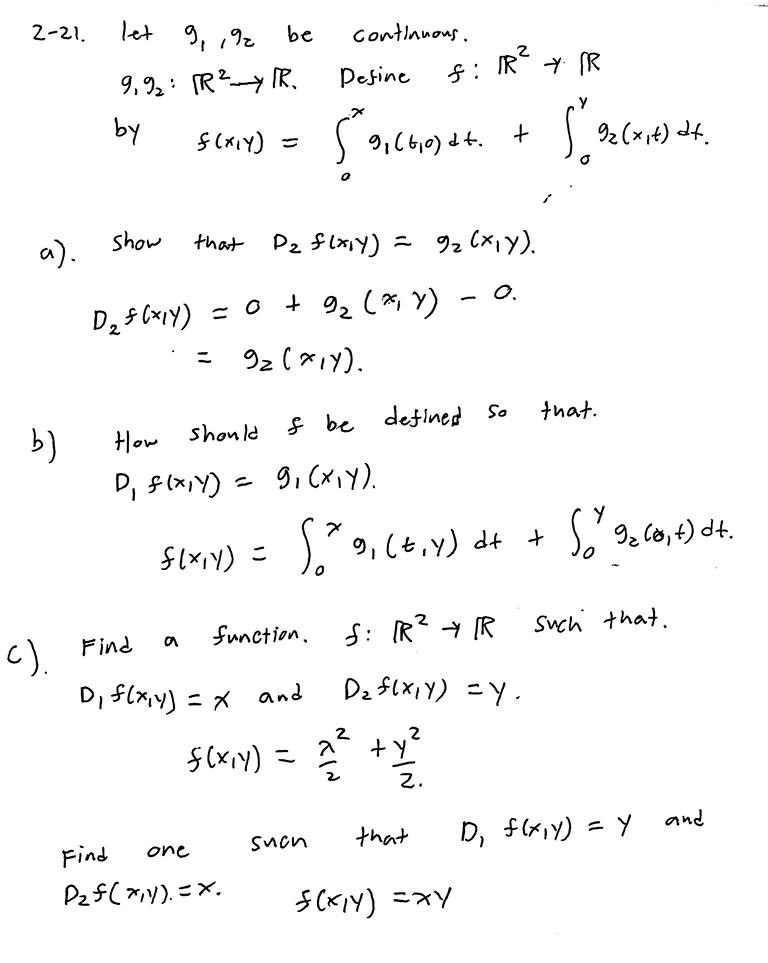 2-21. let g₁, g₂ be continuous.
g₁g₂: ℝ² → ℝ. Define f: ℝ² → ℝ
by f(x,y) = ∫₀ˣ g₁(t,0) dt. + ∫₀ʸ g₂(x,t) dt.
a). Show that D₂ f(x,y) = g₂(x,y).
D₂ f(x,y) = 0 + g₂(x,y) − 0.
= g₂(x,y).
b) How should f be defined so that.
D₁ f(x,y) = g₁(x,y).
f(x,y) = ∫₀ˣ g₁(t,y) dt + ∫₀ʸ g₂(0,t) dt.
c). Find a function. f: ℝ² → ℝ such that.
D₁ f(x,y) = x and D₂ f(x,y) = y.
f(x,y) = x²/2 + y²/2.
Find one such that D₁ f(x,y) = y and
D₂ f(x,y). = x. f(x,y) = xy